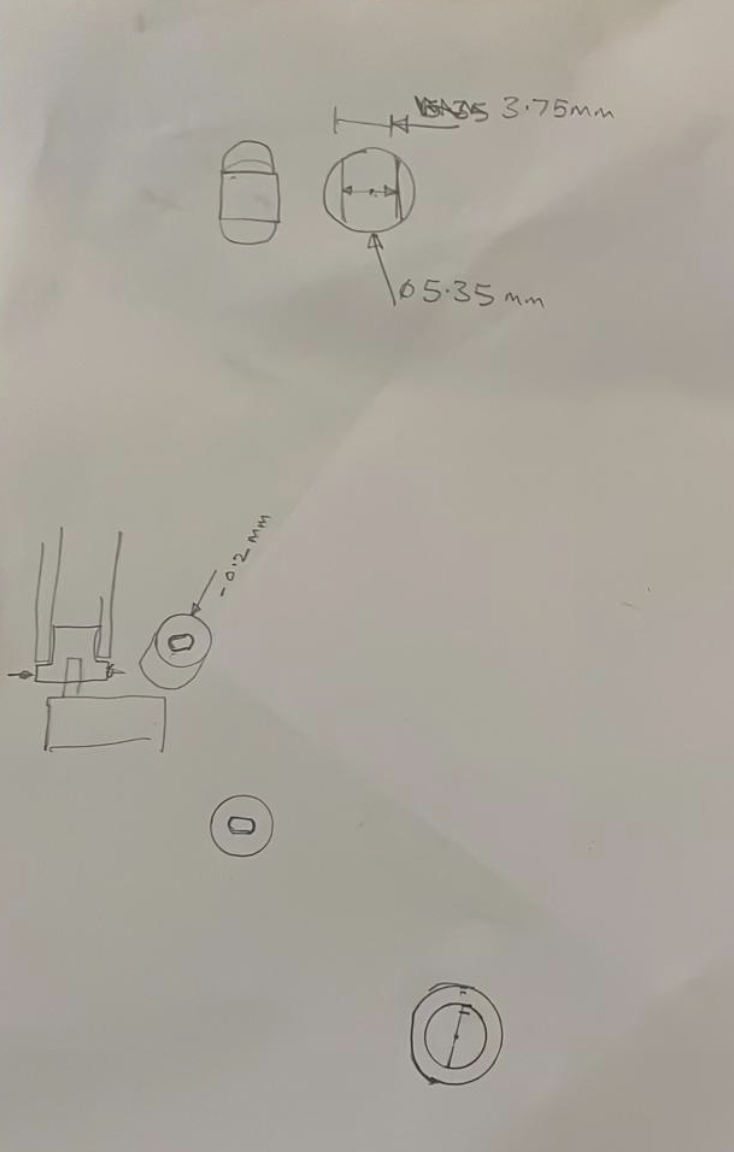 3.75mm
ø5.35mm
-0.2mm